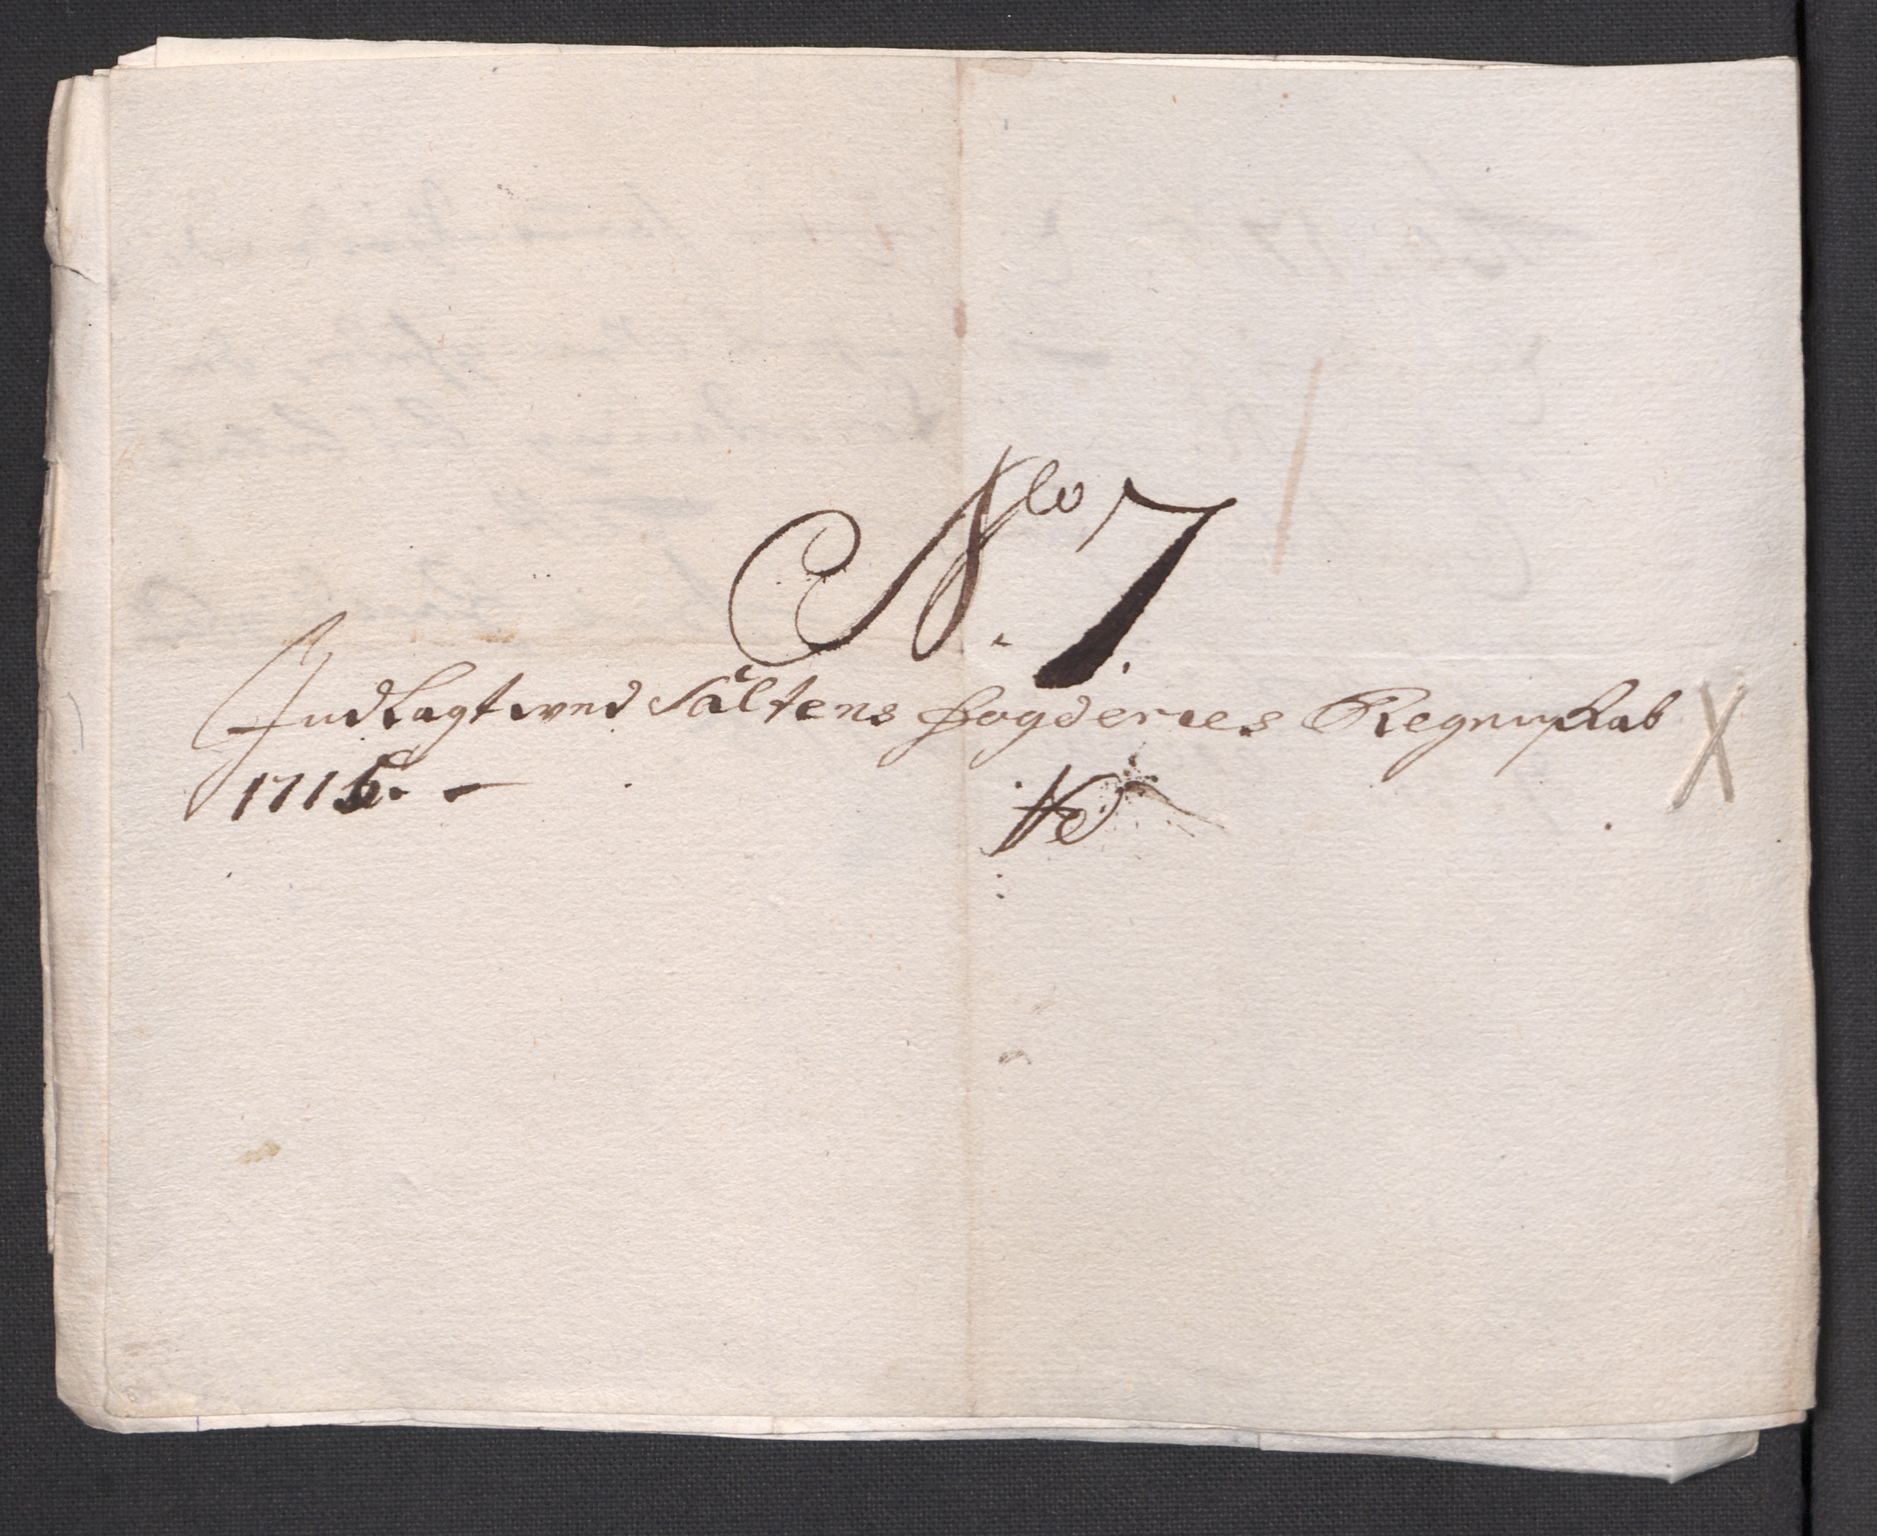 No. 7.
Indlagt wed Saltens Fogderies Regnskab
1715. –